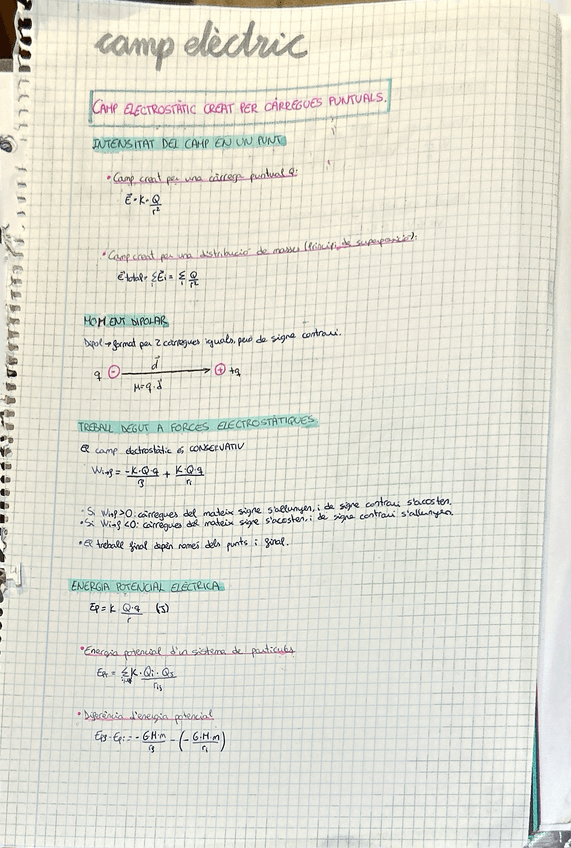 camp elèctric
CAMP ELECTROSTÀTIC CREAT PER CÀRREGUES PUNTUALS.
INTENSITAT DEL CAMP EN UN PUNT
• Camp creat per una càrrega puntual Q:
E⃗ = K · Q/r²
• Camp creat per una distribució de masses (Principi de superposició):
E⃗total = Σ E⃗i = Σ Q/r²
MOMENT DIPOLAR
Dipol → format per 2 càrregues iguals, però de signe contrari.
q ⊖ d⃗ ⊕ +q
μ = q · d⃗
TREBALL DEGUT A FORCES ELECTROSTÀTIQUES
El camp electrostàtic és CONSERVATIU
Wi→f = -K·Q·q/rf + K·Q·q/ri
• Si Wi→f > 0: càrregues del mateix signe s'allunyen, i de signe contrari s'acosten.
• Si Wi→f < 0: càrregues del mateix signe s'acosten, i de signe contrari s'allunyen.
• El treball final depèn només dels punts i final.
ENERGIA POTENCIAL ELÈCTRICA
Ep = K Q·q/r (J)
• Energia potencial d'un sistema de partícules
Ept = Σ K · Qi · Qj/rij
• Diferència d'energia potencial
Epf - Epi = - G M·m/rf - (- G·M·m/ri)